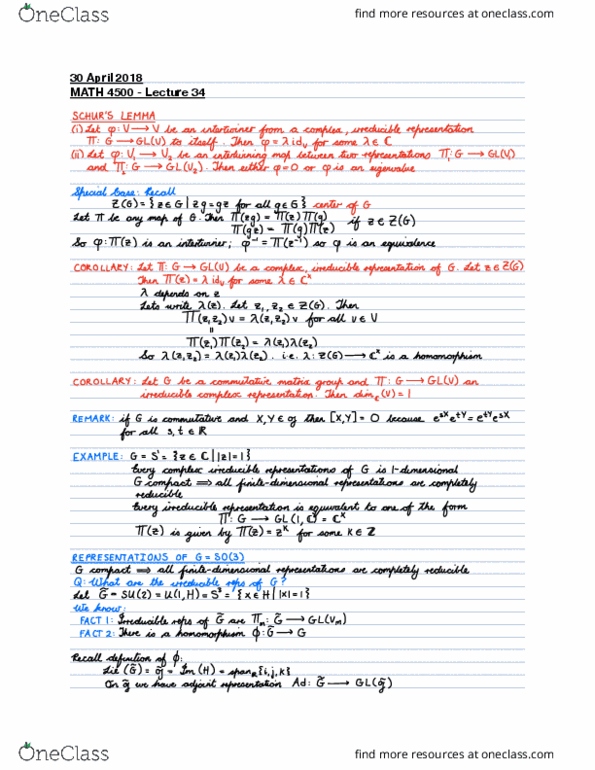 OneClass
find more resources at oneclass.com
30 April 2018
MATH 4500 - Lecture 34
SCHUR'S LEMMA
(i) Let φ: V → V be an intertwiner from a complex, irreducible representation
Π: G → GL(V) to itself. Then φ = λ id_V for some λ ∈ ℂ
(ii) Let φ: V₁ → V₂ be an intertwining map between two representations Π₁: G → GL(V₁)
and Π₂: G → GL(V₂). Then either φ=0 or φ is an eigenvalue
Special Case: Recall
Z(G) = {z ∈ G | zg = gz for all g ∈ G} center of G
Let Π be any map of G. Then Π(zg) = Π(z)Π(g)
Π(gz) = Π(g)Π(z) if z ∈ Z(G)
So φ: Π(z) is an intertwiner; φ⁻¹ = Π(z⁻¹) so φ is an equivalence
COROLLARY: Let Π: G → GL(V) be a complex, irreducible representation of G. Let z ∈ Z(G)
Then Π(z) = λ id_V for some λ ∈ ℂˣ
λ depends on z
Lets write λ(z). Let z₁, z₂ ∈ Z(G). Then
Π(z₁z₂)v = λ(z₁z₂)v for all v ∈ V
=
Π(z₁)Π(z₂) = λ(z₁)λ(z₂)
So λ(z₁z₂) = λ(z₁)λ(z₂). i.e. λ: Z(G) → ℂˣ is a homomorphism
COROLLARY: Let G be a commutative matrix group and Π: G → GL(V) an
irreducible complex representation. Then dim_ℂ(V) = 1
REMARK: if G is commutative and X, Y ∈ g then [X,Y] = 0 because e^{sX}e^{tY} = e^{tY}e^{sX}
for all s, t ∈ ℝ
EXAMPLE: G = S¹ = {z ∈ ℂ | |z| = 1}
Every complex irreducible representations of G is 1-dimensional
G compact ⟹ all finite-dimensional representations are completely
reducible
Every irreducible representation is equivalent to one of the form
Π: G → GL(1, ℂ) = ℂˣ
Π(z) is given by Π(z) = z^k for some k ∈ ℤ
REPRESENTATIONS OF G = SO(3)
G compact ⟹ all finite-dimensional representations are completely reducible
Q: What are the irreducible reps of G?
Let G̃ = SU(2) = U(1, H) = S³ = {x ∈ H | |x| = 1}
We know:
FACT 1: Irreducible reps of G̃ are Π_m: G̃ → GL(V_m)
FACT 2: There is a homomorphism φ: G̃ → G
Recall definition of φ:
Lie (G̃) = g̃ = Im(H) = span_ℝ{i, j, k}
On g̃ we have adjoint representation Ad: G̃ → GL(g̃)
OneClass
find more resources at oneclass.com